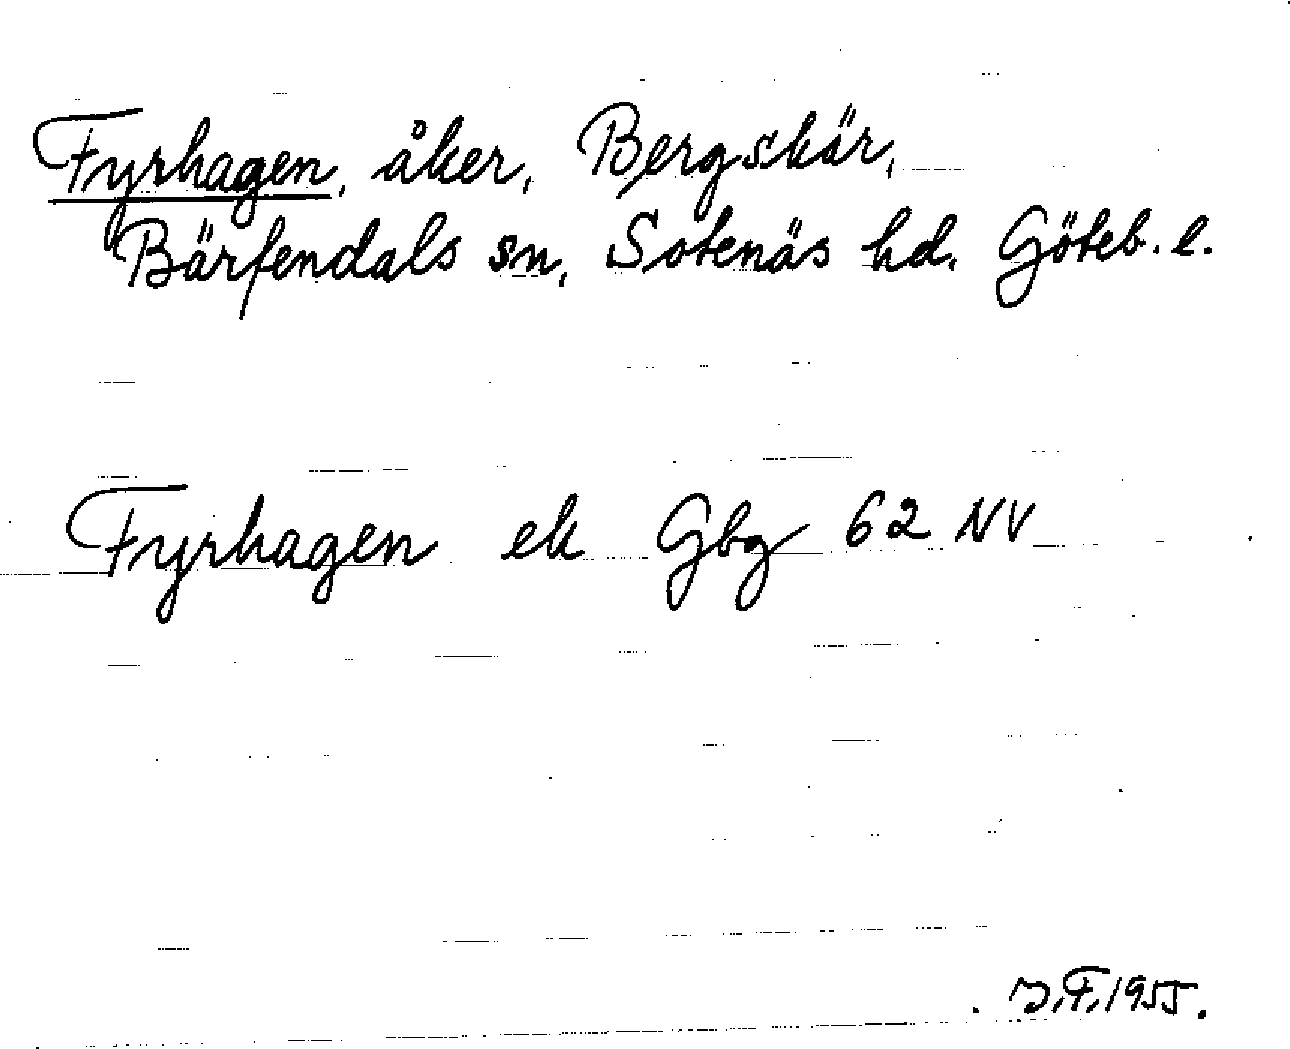 Fyrhagen, åker, Bergskär,
Bärfendals sn, Sotenäs hd. Göteb. l.
Fyrhagen ek Gbg 62 NV
J.F. 1955.